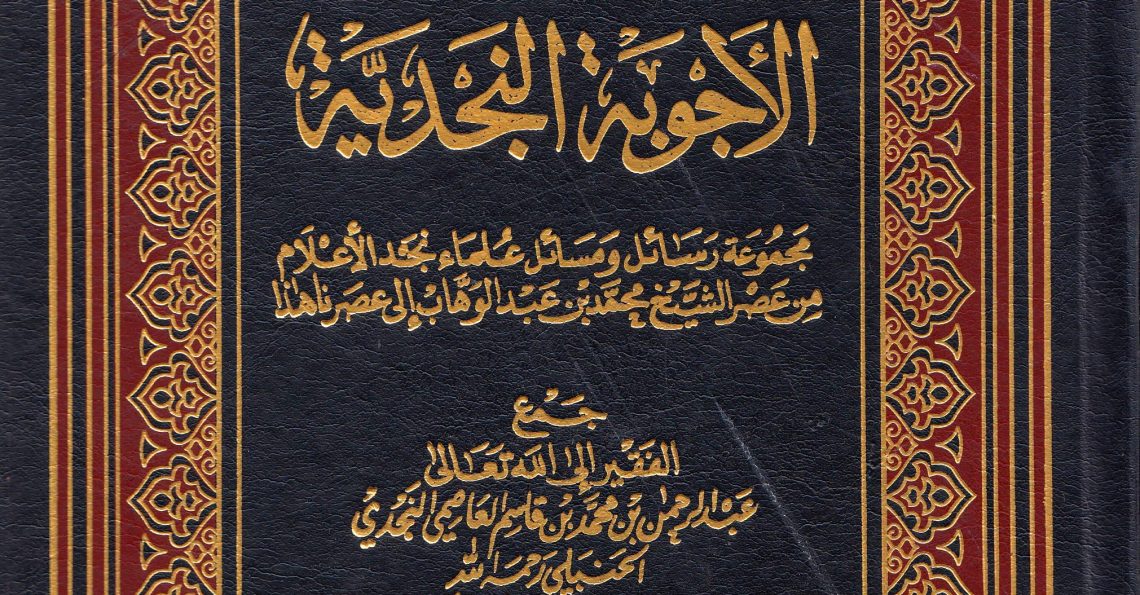 الأجوبة النجدية
مجموعة رسائل ومسائل علماء نجد الأعلام
من عصر الشيخ محمد بن عبد الوهاب إلى عصرنا هذا
جمع
الفقير إلى الله تعالى
عبد الرحمن بن محمد بن قاسم العاصمي النجدي
الحنبلي رحمه الله